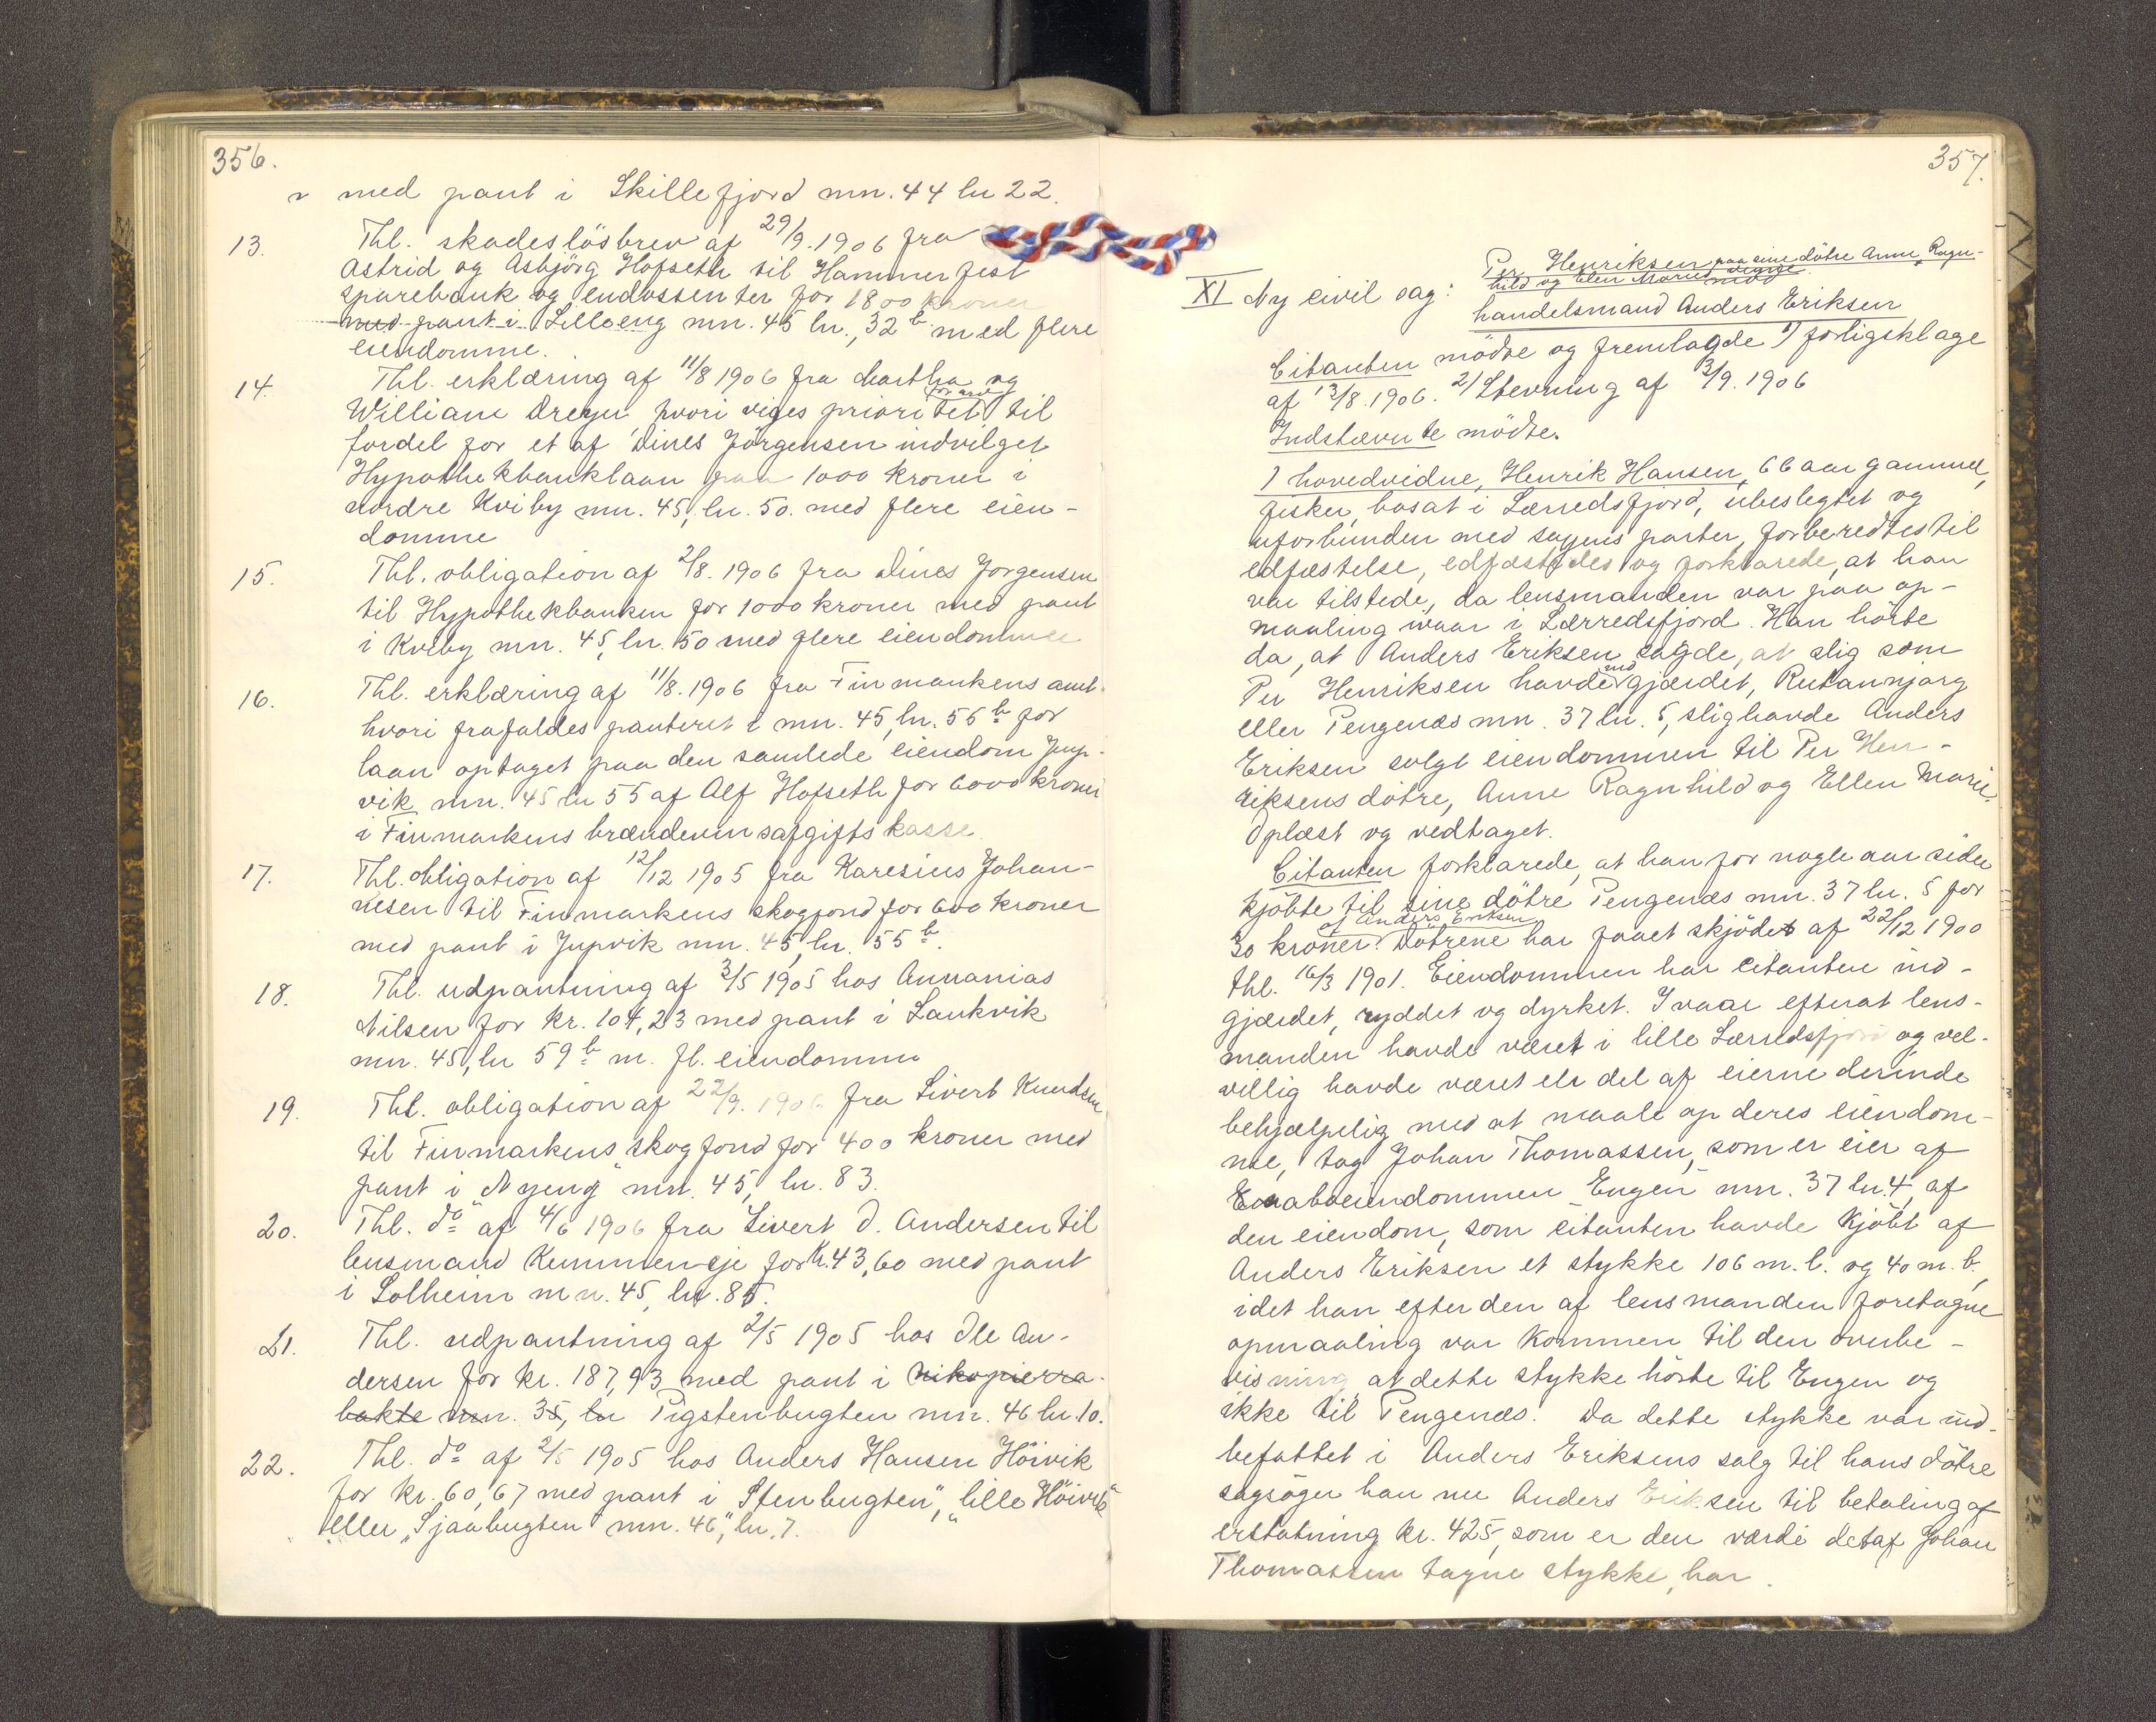 356.
med pant i Skillefjord mn. 44 ln 22.
13. Thl. skadeslösbrev af 29/9. 1906 fra
Astrid og Asbjörg Hofseth til Hammerfest
sparebank og endossenter for 1800 kroner
med pant i Lilleeng mn. 45 ln., 32 b med flere
eiendomme.
14. Thl. erklæring af 11/8 1906 fra Martha og
William Dreyer, hvori viges prioritet til
fordel for et af Dines Jörgensen indvilget
Hypothekbanklaan paa 1000 kroner i
nordre Kviby mn. 45, ln. 50. med flere eien-
domme
15. Thl. obligation af 2/8. 1906 fra Dines Jorgensen
til Hypothekbanken for 1000 kroner med pant
i Kviby mn. 45, ln. 50 med flere eiendomme
16. Thl. erklæring af 11/8. 1906 fra Finmarkens amt
hvori frafaldes panteret i mn. 45, ln. 55 b for
laan optaget paa den samlede eiendom Jup-
vik mn. 45 ln 55 af Alf Hofseth for 6000 kroner
i Finmarkens brændevinsafgiftskasse.
17. Thl. obligation af 12/12 1905 fra Karesius Johan-
nesen til Finmarkens skogfond for 600 kroner
med pant i Jupvik mn. 45, ln. 55 b.
18. Thl. udpantning af 3/5 1905 hos Annanias
Nilsen for kr. 104,23 med pant i Lankvik
mn. 45, ln 59 b m. fl. eiendomme
19. Thl. obligation af 22/9. 1906 fra Sivert Knudsen
til Finmarkens skogfond for 400 kroner med
pant i "Nyeng" mn. 45, ln. 83.
20. Thl. do af 4/6 1906 fra Sivert D. Andersen til
lensmand Kummeneje for kr. 43,60 med pant
i Solheim mn. 45, ln. 85.
21. Thl. udpantning af 2/5 1905 hos Ole An-
dersen for kr. 187,93 med pant i Nikopierra-
bakte mn. 35, ln Pigstenbugten mn. 46 ln. 10.
22. Thl. do af 2/5 1905 hos Anders Hansen Höivik
for kr. 60,67 med pant i "Stenbugten", "lille Höivik"
eller "Sjaabugten" mn. 46, ln. 7.
357.
Per Henriksen paa sine dötre Anne, Ragn-
hild og Ellen Maries vegne
XI Ny civil sag: mod
handelsmand Anders Eriksen
Citanten mödte og fremlagde 1) forligsklage
af 13/8. 1906. 2) Stevning af 3/9. 1906
Indstævnte mödte.
1 hovedvidne, Henrik Hansen, 66 aar gammel,
fisker, bosat i Lærredsfjord, ubeslegtet og
uforbunden med sagens parter, forberedtes til
edfæstelse, edfæstedes og forklarede, at han
var tilstede, da lensmanden var paa op-
maaling ivaar i Lærredsfjord. Han hörte
da, at Anders Eriksen sagde, at slig som
Per Henriksen havde indgjærdet, Rutannjarg
eller Pengenæs mn. 37 ln. 5, slig havde Anders
Eriksen solgt eiendommen til Per Hen-
riksens dötre, Anne Ragnhild og Ellen Marie.
Oplæst og vedtaget.
Citanten forklarede, at han for nogle aar siden
kjöbte til sine dötre Pengenæs mn. 37 ln. 5 for
af Anders Eriksen
30 kroner. Dötrene har faaet skjödet af 22/12 1900
thl. 16/3 1901. Eiendommen har citanten ind-
gjærdet, ryddet og dyrket. Ivaar efterat lens-
manden havde været i lille Lærredsfjord og vel-
villig havde været en del af eierne derinde
behjælpelig med at maale op deres eiendom-
me, tog Johan Thomassen, som er eier af
naboeiendommen "Engen" mn. 37 ln. 4, af
den eiendom, som citanten havde kjöbt af
Anders Eriksen et stykke 106 m. l. og 40 m. b.,
idet han efter den af lensmanden foretagne
opmaaling var kommen til den overbe-
visning, at dette stykke hörte til Engen og
ikke til Pengenæs. Da dette stykke var ind-
befattet i Anders Eriksens salg til hans dötre
sagsöger han nu Anders Eriksen til betaling af
erstatning kr. 425, som er den værdi det af Johan
Thomassen tagne stykke, har.